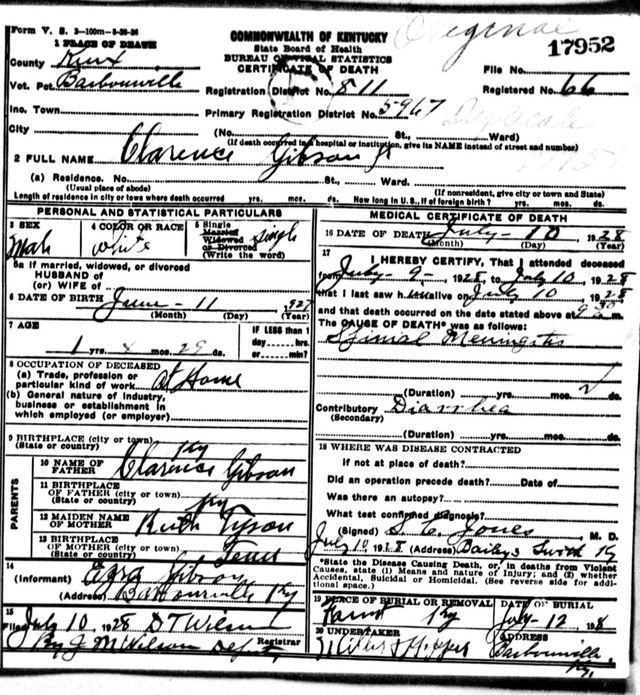 Form V. S. 3-100m-5-26-26
COMMONWEALTH OF KENTUCKY
State Board of Health
BUREAU OF VITAL STATISTICS
CERTIFICATE OF DEATH
Original
17952
1 PLACE OF DEATH
County Knox
Vot. Pct. Barbourville
Inc. Town
City
Registration District No. 811
Primary Registration District No. 5967
File No.
Registered No. 66
Duplicate
(No. St., Ward)
(If death occurred in a hospital or institution, give its NAME instead of street and number)
2 FULL NAME Clarence Gibson Jr
(a) Residence. No. St., Ward.
(Usual place of abode) (If nonresident, give city or town and State)
Length of residence in city or town where death occurred yrs. mos. ds. How long in U. S., if of foreign birth? yrs. mos. ds.
PERSONAL AND STATISTICAL PARTICULARS
3 SEX
Male
4 COLOR OR RACE
White
5 Single
Married
Widowed
or Divorced
(Write the word)
Single
5a If married, widowed, or divorced
HUSBAND of
(or) WIFE of
6 DATE OF BIRTH June - 11 1927
(Month) (Day) (Year)
7 AGE
1 yrs. mos. 29 ds.
IF LESS than 1
day......hrs.
or......min.
8 OCCUPATION OF DECEASED
(a) Trade, profession or
particular kind of work at Home
(b) General nature of industry,
business or establishment in
which employed (or employer)
9 BIRTHPLACE (city or town)
(State or country) Ky
PARENTS
10 NAME OF
FATHER Clarence Gibson
11 BIRTHPLACE
OF FATHER (city or town)
(State or country) Ky
12 MAIDEN NAME
OF MOTHER Ruth Tyson
13 BIRTHPLACE
OF MOTHER (city or town)
(State or country) Tenn
14
(Informant) Ezra Gibson
(Address) Barbourville Ky
15
Filed July 10, 1928 D T Wilson
Registrar
By J M Wilson Deputy
MEDICAL CERTIFICATE OF DEATH
16 DATE OF DEATH July - 10 1928
(Month) (Day) (Year)
17
I HEREBY CERTIFY, That I attended deceased
from July - 9 - 1928 to July 10, 1928
that I last saw h alive on July 10 1928
and that death occurred on the date stated above at 9 m.
The CAUSE OF DEATH* was as follows:
Spinal Meningitis
(Duration) yrs. mos. 2 ds.
Contributory Diarrhea
(Secondary)
(Duration) yrs. mos. ds.
18 WHERE WAS DISEASE CONTRACTED
If not at place of death?
Did an operation precede death? Date of
Was there an autopsy?
What test confirmed diagnosis?
(Signed) S. C. Jones, M. D.
July 10 1928 (Address) Baileys Switch Ky
*State the Disease Causing Death, or, in deaths from Violent
Causes, state (1) Means and nature of Injury; and (2) whether
Accidental, Suicidal or Homicidal. (See reverse side for addi-
tional space.)
19 PLACE OF BURIAL OR REMOVAL
Ky
DATE OF BURIAL
July-12 1928
20 UNDERTAKER
Hopper
ADDRESS
Barbourville
Ky.